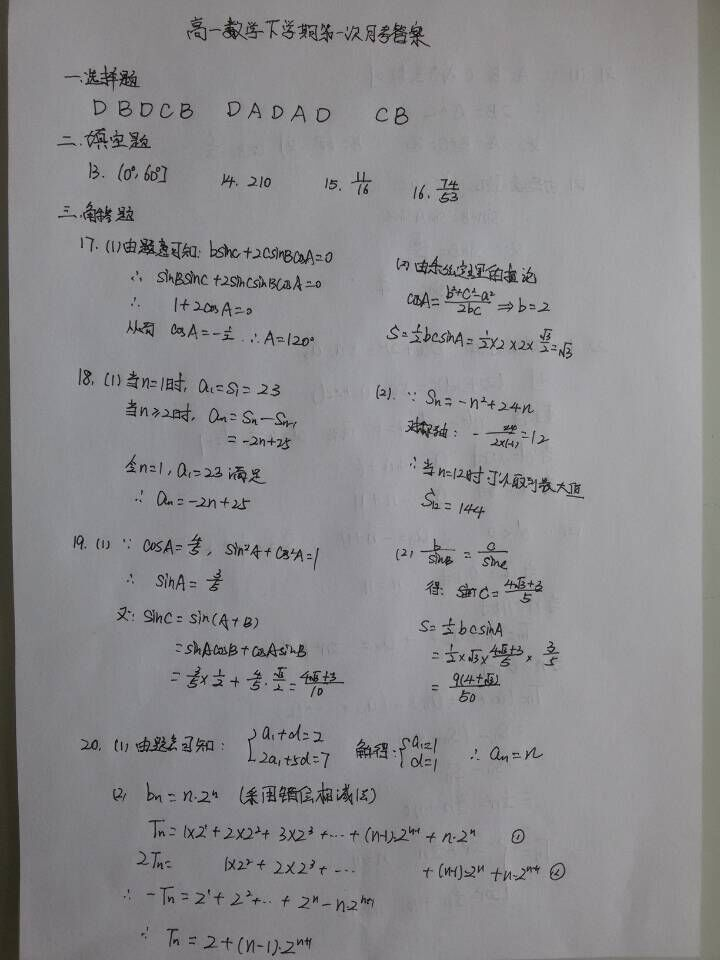 高一数学下学期第一次月考答案
一.选择题
D B D C B D A D A D C B
二.填空题
13. (0°, 60°] 14. 210 15. 11/16 16. 74/53
三.解答题
17. (1) 由题意可知: bsinC+2CsinBcosA=0
∴ sinBsinC+2sinCsinBcosA=0
∴ 1+2cosA=0
从而 cosA=-1/2 ∴A=120°
(2) 由余弦定理的推论
cosA=(b²+c²-a²)/2bc ⇒ b=2
S=1/2bcsinA=1/2×2×2×√3/2=√3
18. (1) 当n=1时, a₁=S₁=23
当n≥2时, aₙ=Sₙ-Sₙ₋₁
=-2n+25
令n=1, a₁=23 满足
∴ aₙ=-2n+25
(2). ∵ Sₙ=-n²+24n
对称轴: -24/(2×(-1))=12
∴当n=12时可以取到最大值
S₁₂=144
19. (1) ∵ cosA=4/5, sin²A+cos²A=1
∴ sinA=3/5
又∵ sinC=sin(A+B)
=sinAcosB+cosAsinB
=3/5×1/2+4/5·√3/2=(4√3+3)/10
(2) b/sinB=c/sinC
得: sinC=(4√3+3)/5
S=1/2bcsinA
=1/2×√3×(4√3+3)/5×3/5
=9(4+√3)/50
20. (1) 由题意可知: {a₁+d=2
2a₁+5d=7
解得: {a₁=1
d=1
∴ aₙ=n
(2) bₙ=n·2ⁿ (采用错位相减法)
Tₙ=1×2¹+2×2²+3×2³+…+(n-1)·2ⁿ⁻¹+n·2ⁿ ①
2Tₙ= 1×2²+2×2³+… +(n-1)·2ⁿ+n·2ⁿ⁺¹ ②
∴ -Tₙ=2¹+2²+…+2ⁿ-n·2ⁿ⁺¹
∴ Tₙ=2+(n-1)·2ⁿ⁺¹